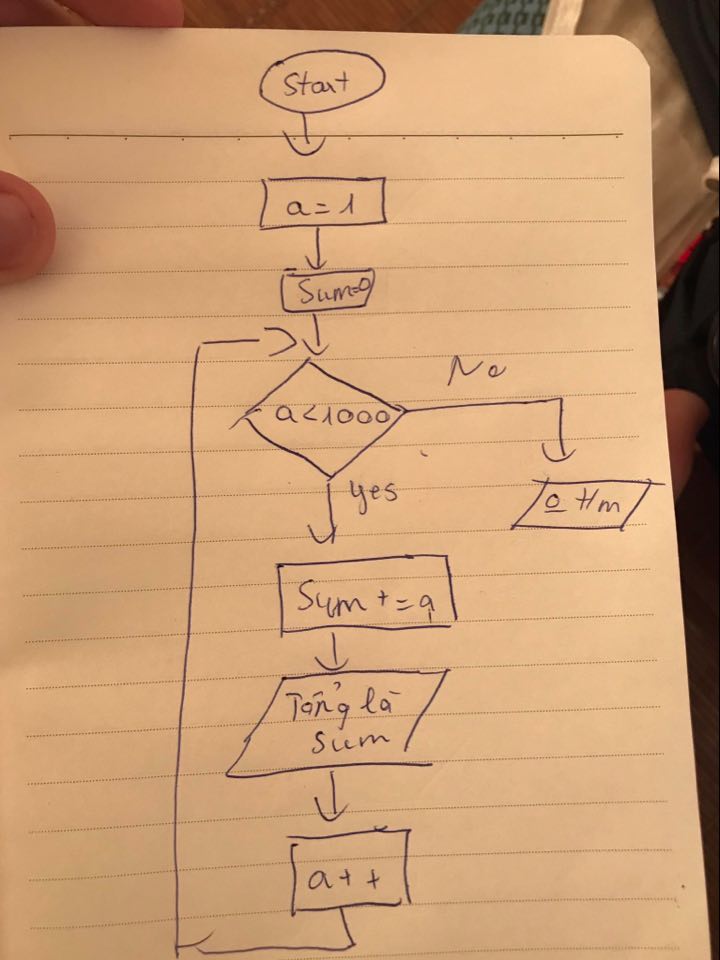 Start
a = 1
Sum=0
a<1000
No
yes
Sum + = a
Tổng là
Sum
a + +